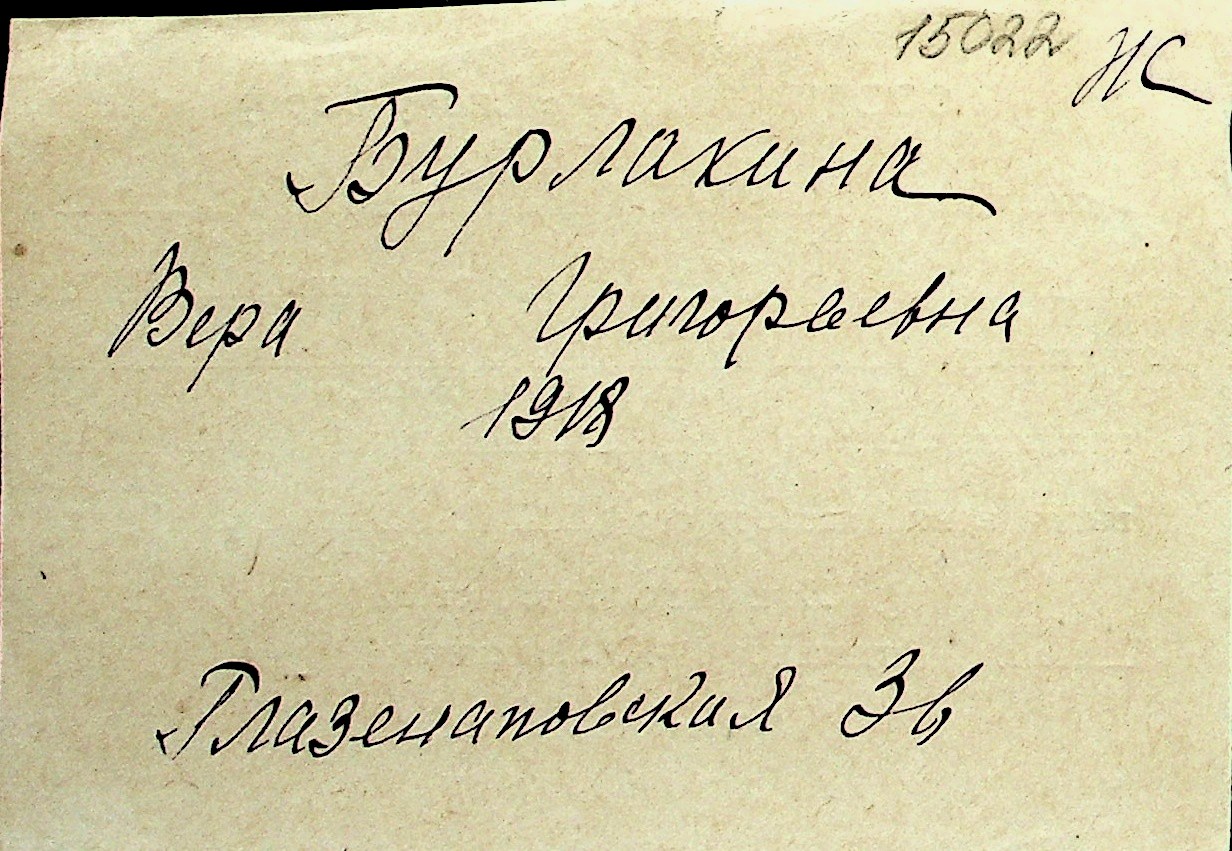 15022 НС
Бурлакина
Вера Григорьевна
1918
Глазенаповская 3в